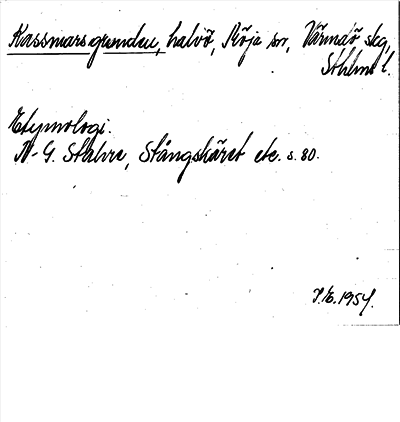 Kassmarsgrunden, halvö, Röja sn, Värmdö skg,
Sthlms l.
Etymologi.
N-G. Stahre, Stångskäret etc. s. 80.
J.E. 1954.